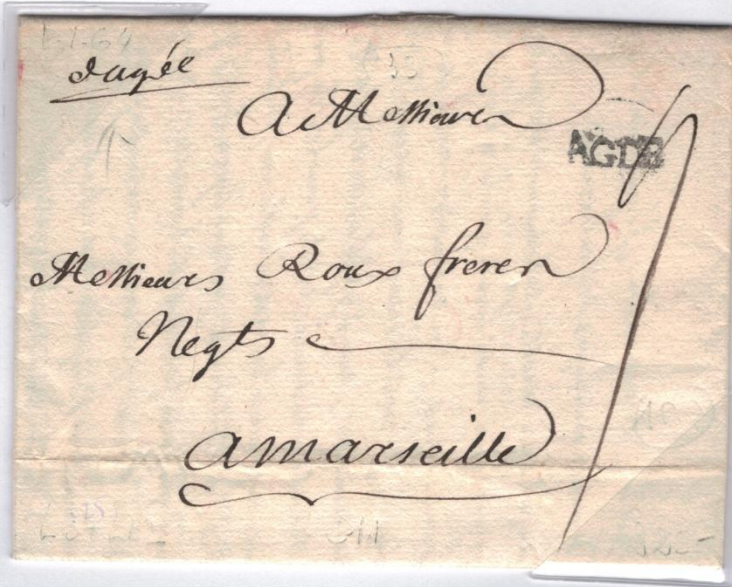 dagde
A Messieurs
AGDE
Messieurs Roux freres
Negts
a marseille